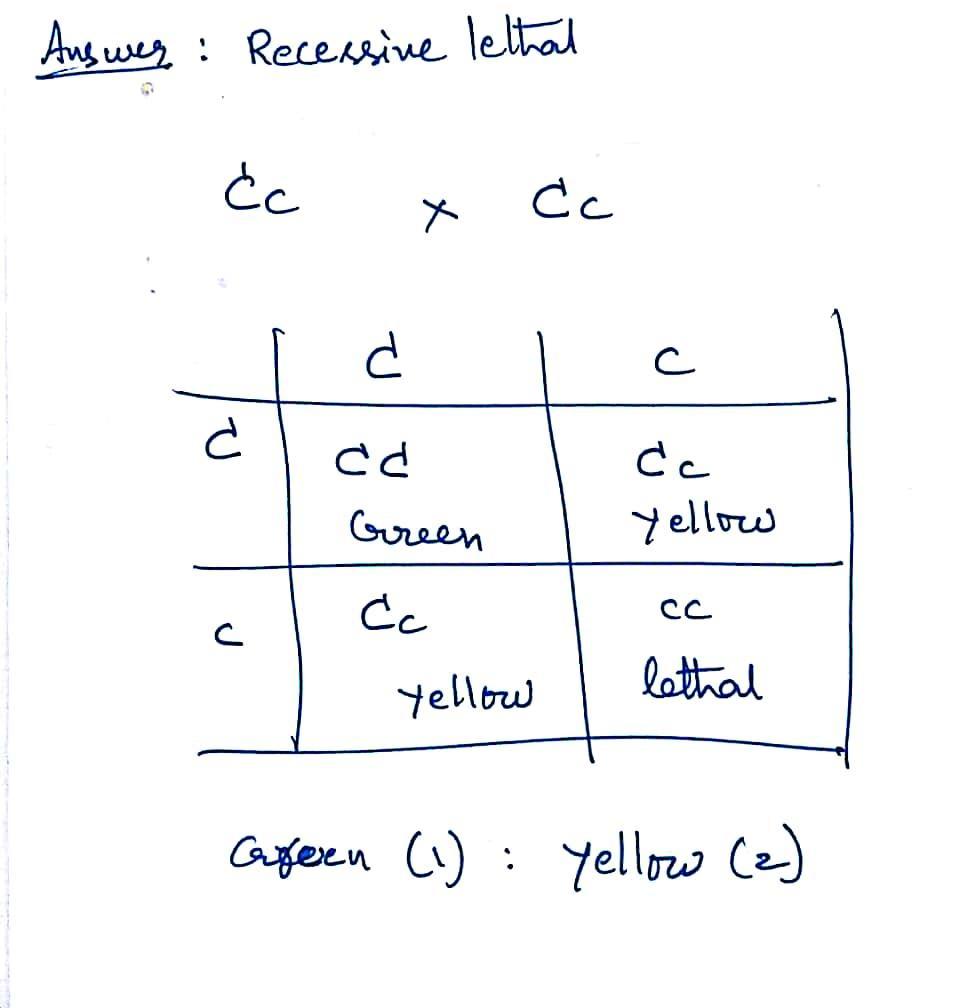 Answer : Recessive lethal
Cc × Cc
C c
C CC Cc
Green Yellow
c Cc cc
Yellow lethal
Green (1) : Yellow (2)